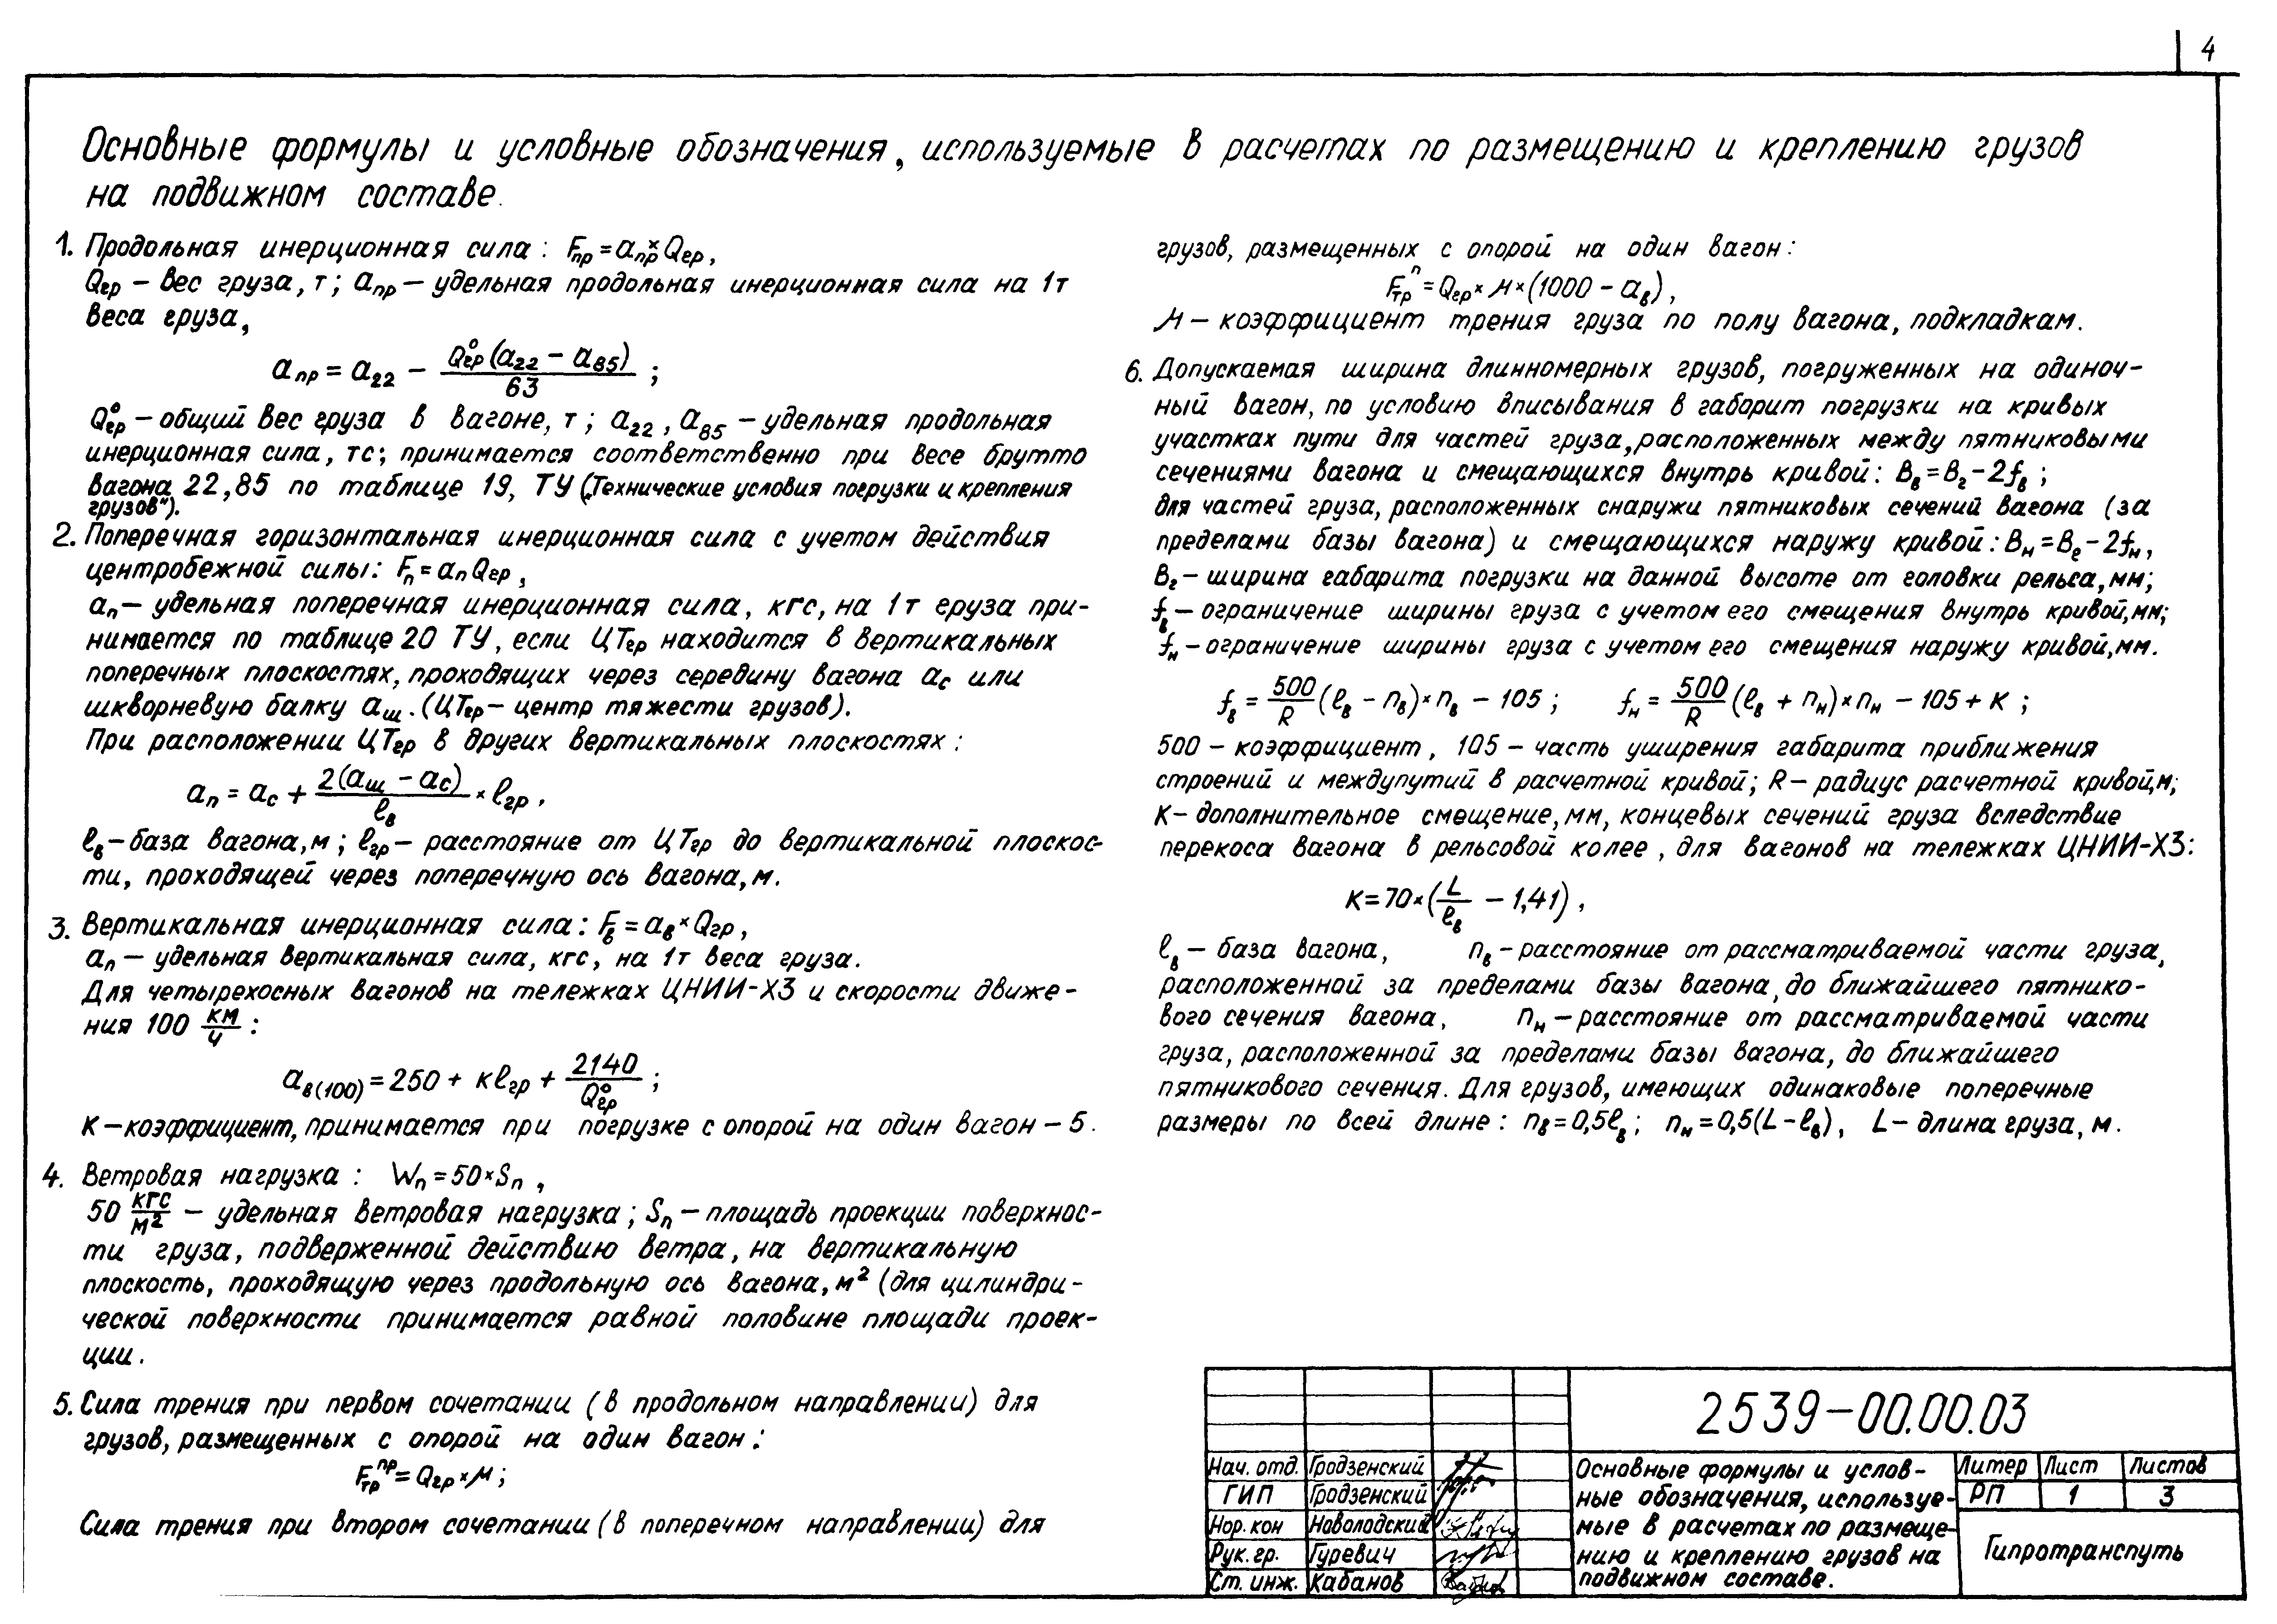 4
Основные формулы и условные обозначения, используемые в расчетах по размещению и креплению грузов
на подвижном составе.
1. Продольная инерционная сила: Fпр = aпр × Qгр,
Qгр – вес груза, т; aпр – удельная продольная инерционная сила на 1т
веса груза,
aпр = a22 – Q°гр(a22 – a85)/63 ;
Q°гр – общий вес груза в вагоне, т; a22, a85 – удельная продольная
инерционная сила, тс; принимается соответственно при весе брутто
вагона 22,85 по таблице 19, ТУ („Технические условия погрузки и крепления
грузов").
2. Поперечная горизонтальная инерционная сила с учетом действия
центробежной силы: Fп = aпQгр,
aп – удельная поперечная инерционная сила, кгс, на 1т груза при-
нимается по таблице 20 ТУ, если ЦТгр находится в вертикальных
поперечных плоскостях, проходящих через середину вагона aс или
шкворневую балку aш. (ЦТгр – центр тяжести грузов).
При расположении ЦТгр в других вертикальных плоскостях:
aп = aс + 2(aш – aс)/ℓв × ℓгр,
ℓв – база вагона, м; ℓгр – расстояние от ЦТгр до вертикальной плоскос-
ти, проходящей через поперечную ось вагона, м.
3. Вертикальная инерционная сила: Fв = aв × Qгр,
aп – удельная вертикальная сила, кгс, на 1т веса груза.
Для четырехосных вагонов на тележках ЦНИИ-Х3 и скорости движе-
ния 100 км/ч :
aв(100) = 250 + кℓгр + 2140/Q°гр ;
К – коэффициент, принимается при погрузке с опорой на один вагон – 5.
4. Ветровая нагрузка: Wп = 50 × Sп,
50 кгс/м² – удельная ветровая нагрузка; Sп – площадь проекции поверхнос-
ти груза, подверженной действию ветра, на вертикальную
плоскость, проходящую через продольную ось вагона, м² (для цилиндри-
ческой поверхности принимается равной половине площади проек-
ции.
5. Сила трения при первом сочетании (в продольном направлении) для
грузов, размещенных с опорой на один вагон:
Fтр^пр = Qгр × μ;
Сила трения при втором сочетании (в поперечном направлении) для
грузов, размещенных с опорой на один вагон:
Fтр^п = Qгр × μ × (1000 – aв),
μ – коэффициент трения груза по полу вагона, подкладкам.
6. Допускаемая ширина длинномерных грузов, погруженных на одиноч-
ный вагон, по условию вписывания в габарит погрузки на кривых
участках пути для частей груза, расположенных между пятниковыми
сечениями вагона и смещающихся внутрь кривой: Bв = Bг – 2fв ;
для частей груза, расположенных снаружи пятниковых сечений вагона (за
пределами базы вагона) и смещающихся наружу кривой: Bн = Bг – 2fн,
Bг – ширина габарита погрузки на данной высоте от головки рельса, мм;
fв – ограничение ширины груза с учетом его смещения внутрь кривой, мм;
fн – ограничение ширины груза с учетом его смещения наружу кривой, мм.
fв = 500/R (ℓв – nв) × nв – 105 ; fн = 500/R (ℓв + nн) × nн – 105 + К ;
500 – коэффициент, 105 – часть уширения габарита приближения
строений и междупутий в расчетной кривой; R – радиус расчетной кривой, м;
К – дополнительное смещение, мм, концевых сечений груза вследствие
перекоса вагона в рельсовой колее, для вагонов на тележках ЦНИИ-Х3:
К = 70 × (L/ℓв – 1,41),
ℓв – база вагона, nв – расстояние от рассматриваемой части груза,
расположенной за пределами базы вагона, до ближайшего пятнико-
вого сечения вагона, nн – расстояние от рассматриваемой части
груза, расположенной за пределами базы вагона, до ближайшего
пятникового сечения. Для грузов, имеющих одинаковые поперечные
размеры по всей длине: nв = 0,5ℓв; nн = 0,5(L – ℓв), L – длина груза, м.
2539-00.00.03
Нач. отд. Гродзенский
ГИП Гродзенский
Нор. кон Новолодский
Рук. гр. Гуревич
Ст. инж. Кабанов
Основные формулы и услов-
ные обозначения, используе-
мые в расчетах по размеще-
нию и креплению грузов на
подвижном составе.
Литер Лист Листов
РП 1 3
Гипротранспуть